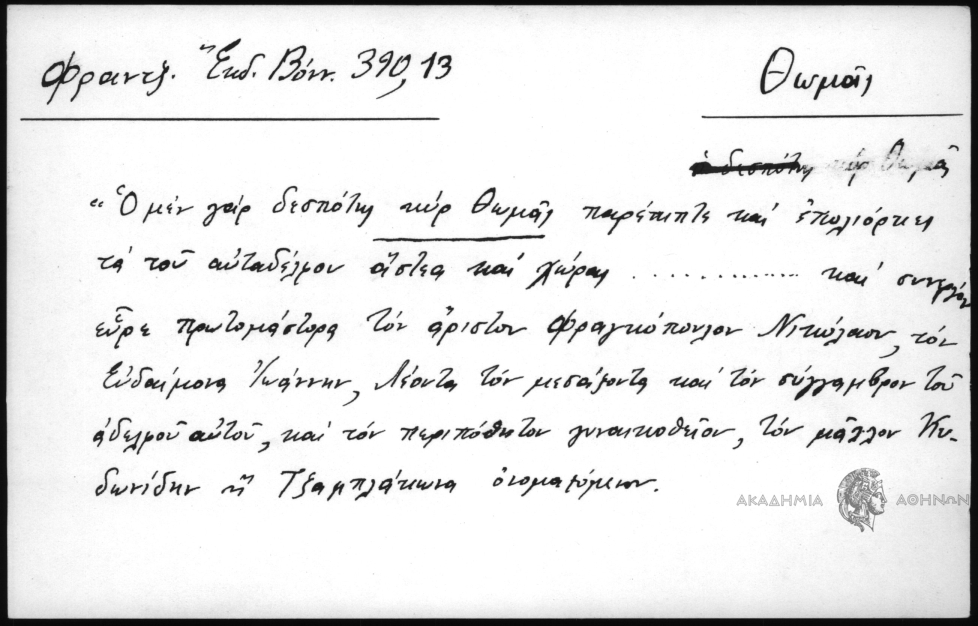 Φραντζ. Ἔκδ. Βόνν. 390, 13
Θωμᾶς
ὁ δεσπότης κύρ Θωμᾶς
"Ὁ μέν γάρ δεσπότης κύρ Θωμᾶς παρέπιπτε καί ἐπολιόρκει
τά τοῦ αὐταδέλφου ἄστεα καί χώρας .............. καί συνεργόν
εὗρε πρωτομάστορα τόν ἄριστον Φραγκόπουλον Νικόλαον, τόν
Εὐδαίμονα Ἰωάννην, Λέοντα τόν μεσάζοντα καί τόν σύγγαμβρον τοῦ
ἀδελφοῦ αὐτοῦ, καί τόν περιπόθητον γυναικοθεῖον, τόν μᾶλλον Κυ-
δωνίδην ἤ Τζαμπλάκωνα ὀνομαζόμενον.
ΑΚΑΔΗΜΙΑ ΑΘΗΝΩΝ